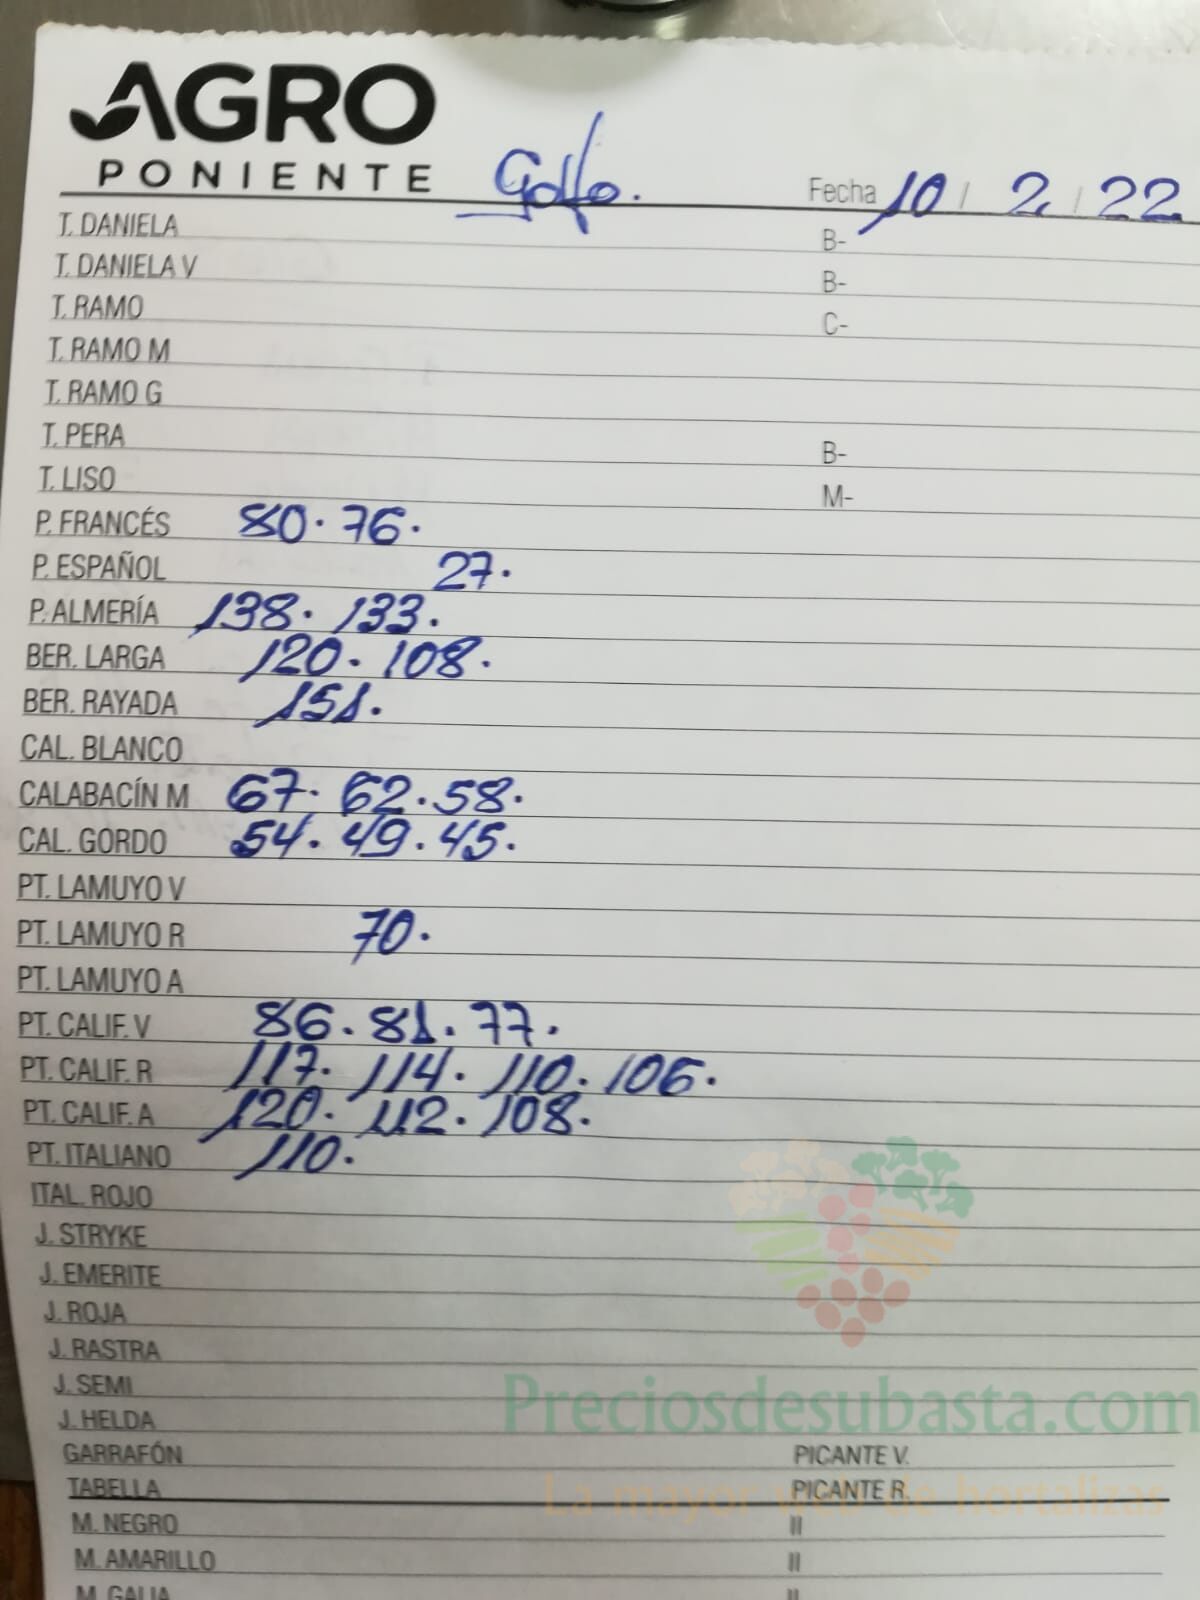 AGRO
PONIENTE
Golfo. Fecha 10 / 2 / 22
T. DANIELA B-
T. DANIELA V B-
T. RAMO C-
T. RAMO M
T. RAMO G
T. PERA B-
T. LISO M-
P. FRANCÉS 80. 76.
P. ESPAÑOL 27.
P. ALMERÍA 138. 133.
BER. LARGA 120. 108.
BER. RAYADA 151.
CAL. BLANCO
CALABACÍN M 67. 62. 58.
CAL. GORDO 54. 49. 45.
PT. LAMUYO V
PT. LAMUYO R 70.
PT. LAMUYO A
PT. CALIF. V 86. 81. 77.
PT. CALIF. R 117. 114. 110. 106.
PT. CALIF. A 120. 112. 108.
PT. ITALIANO 110.
ITAL. ROJO
J. STRYKE
J. EMERITE
J. ROJA
J. RASTRA
J. SEMI
Preciosdesubasta.com
J. HELDA
GARRAFÓN PICANTE V.
TABELLA PICANTE R.
La mayor web de hortalizas
M. NEGRO II
M. AMARILLO II
M. GALIA II